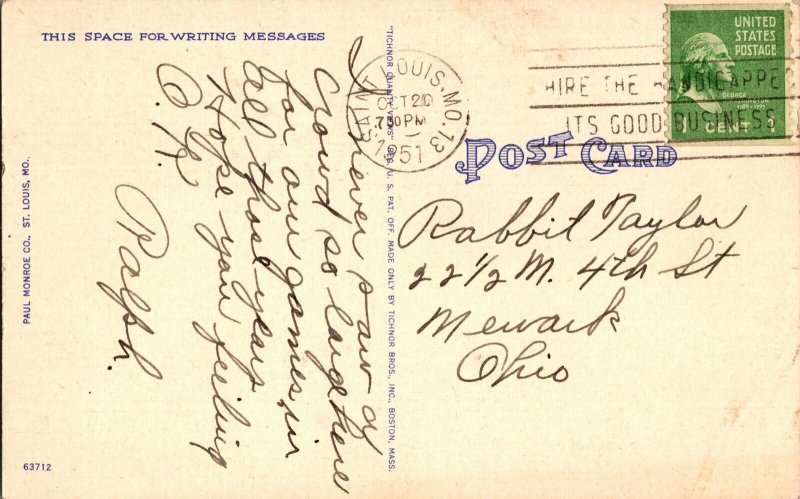 THIS SPACE FOR WRITING MESSAGES
I never saw a
crowd so large here
for our games in
all those years
Hope you feeling
O.K.
Ralph.
PAUL MONROE CO., ST. LOUIS, MO.
63712
"TICHNOR QUALITY VIEWS" REG. U. S. PAT. OFF. MADE ONLY BY TICHNOR BROS., INC., BOSTON, MASS.
SAINT LOUIS, MO. 13
OCT 20
7 30 PM
1951
HIRE THE HANDICAPPE
ITS GOOD BUSINESS
UNITED
STATES
POSTAGE
GEORGE
WASHINGTON
1789-1797
CENT 1
POST CARD
Rabbit Taylor
22 1/2 N. 4th St
Newark
Ohio